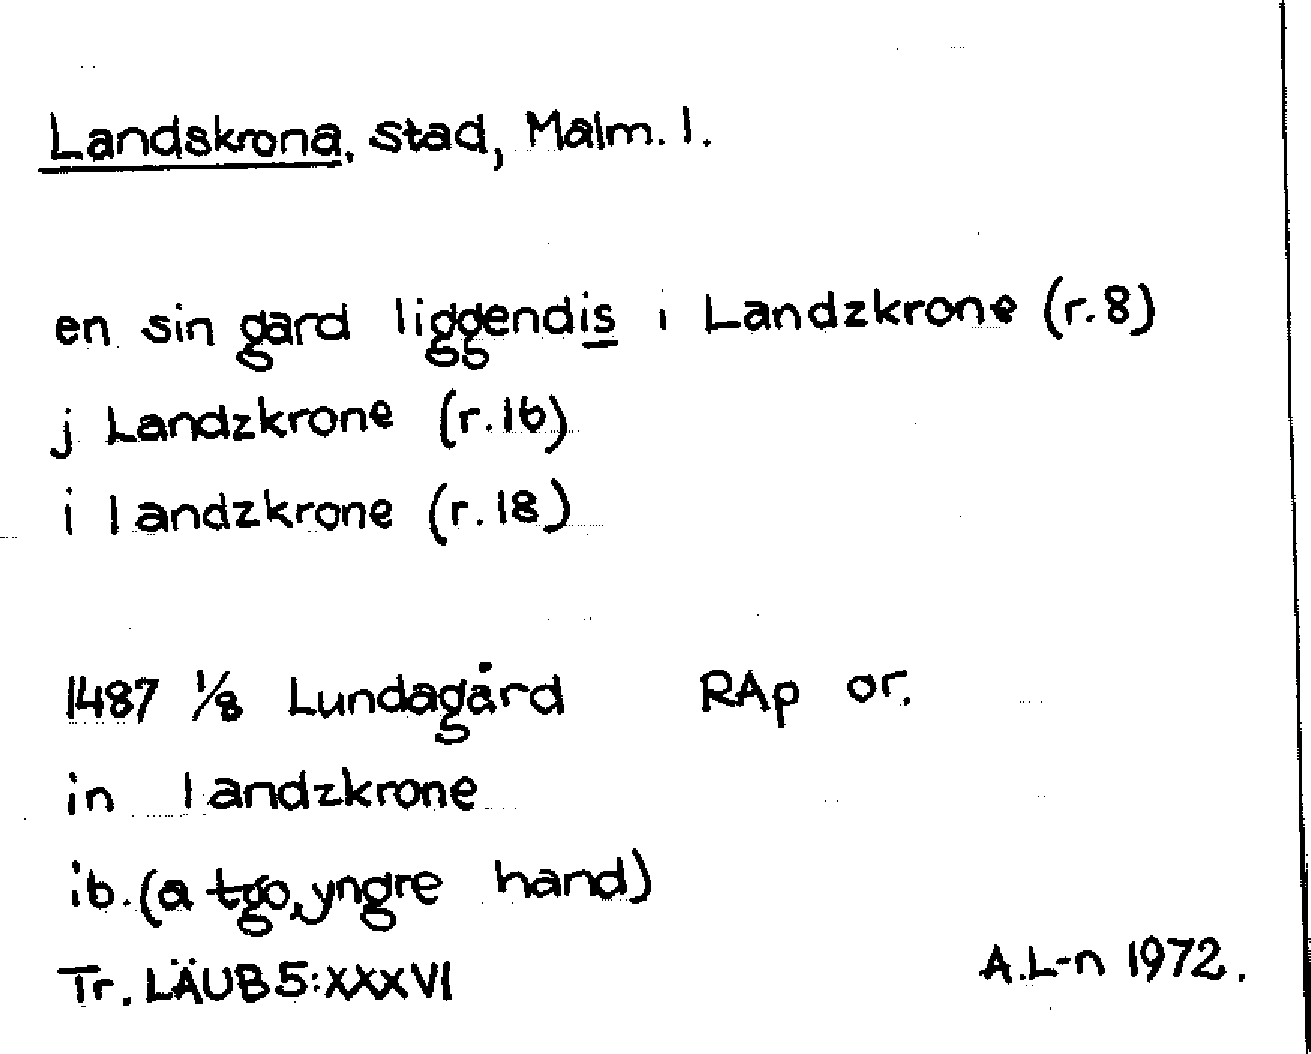 Landskrona, stad, Malm. l.
en sin gard liggendis i Landzkrone (r.8)
j Landzkrone (r.16)
i landzkrone (r.18)
1487 1/8 Lundagård RAp or.
in landzkrone
ib. (a tgo, yngre hand)
Tr. LÄUB 5:XXXVI
A.L-n 1972.